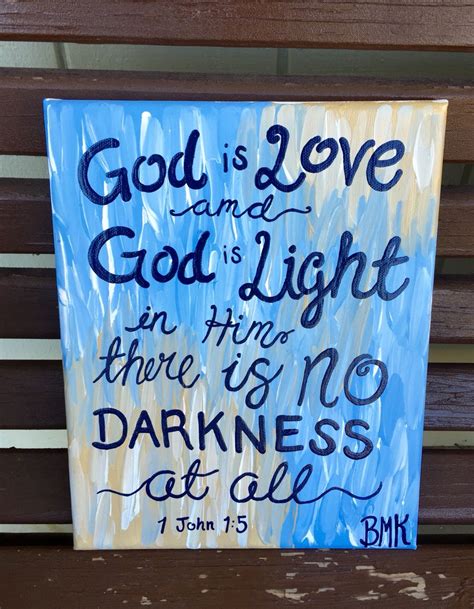 God is Love
and
God is Light
in Him
there is no
DARKNESS
at all
1 John 1:5
BMK